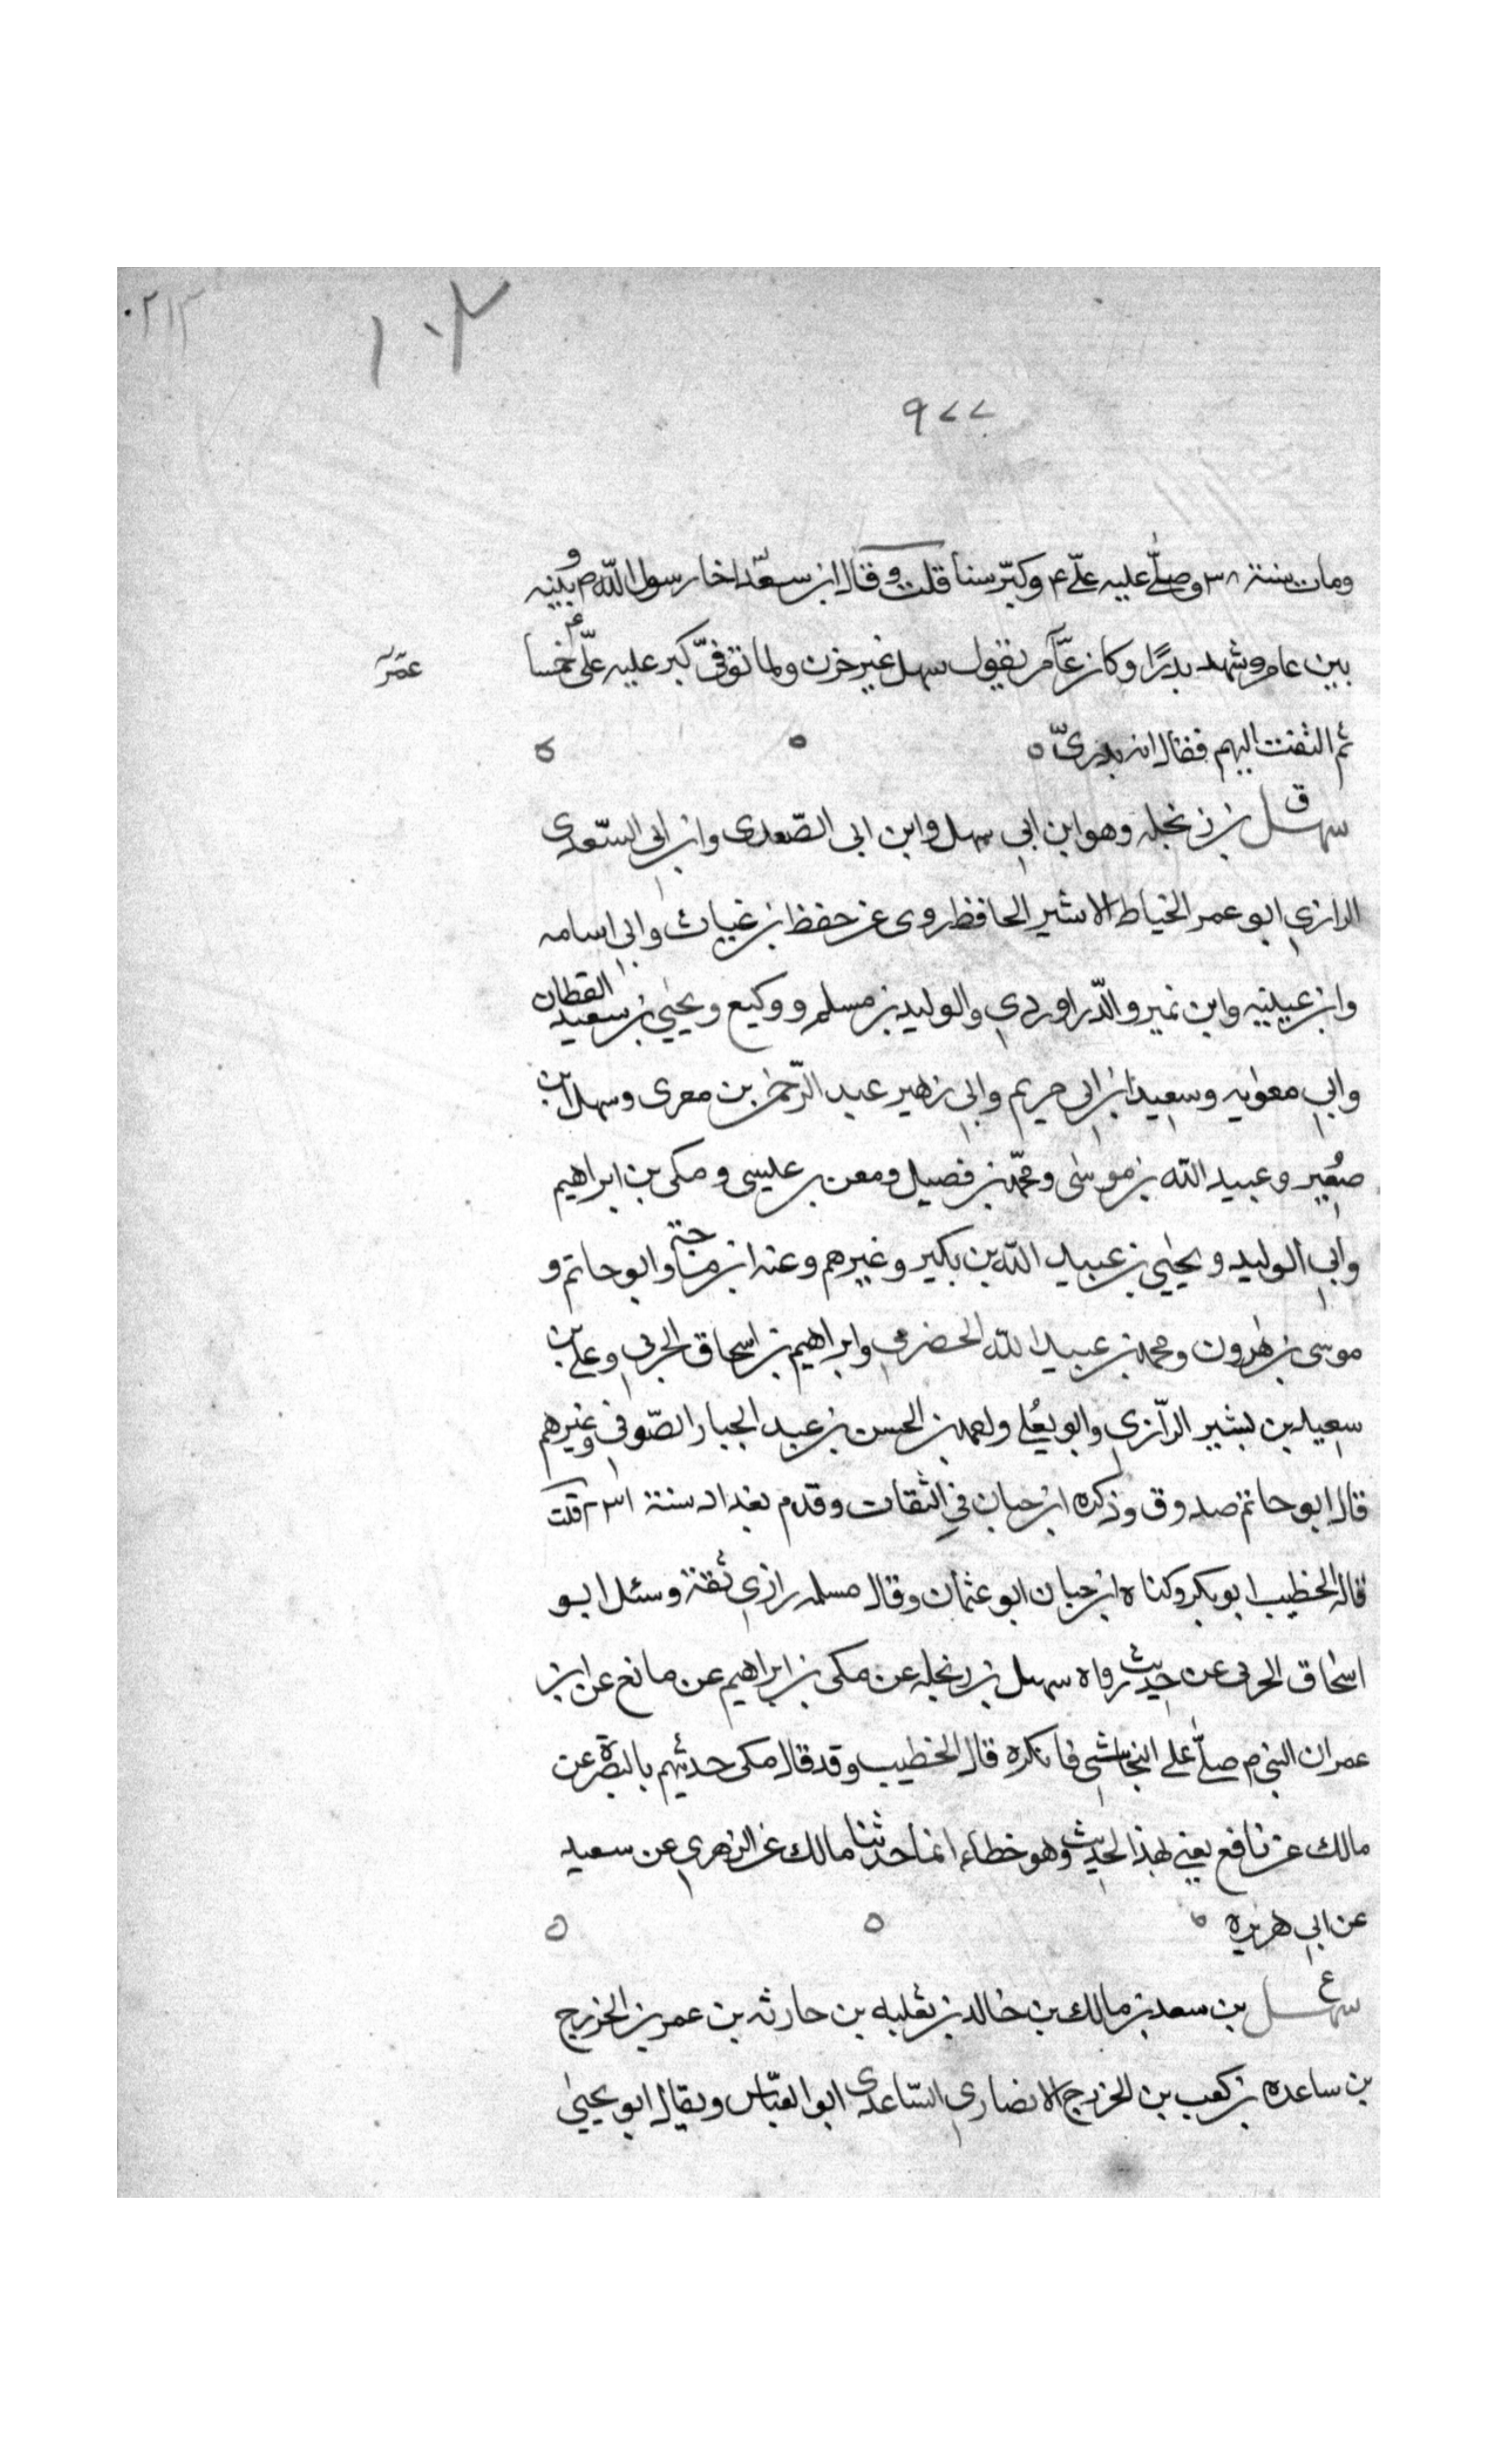 ٠٢١٣
١٠٢
٩٧٧
ومات سنة ٣٨ وصلّى عليه علّى ع وكبّر ستا قلت وقال ابن سعد اخا رسول اللّه ص بينه و
بين عامر وشهد بدرًا وكان عآمر يقول سهل غير حزن ولما توفىّ كبر عليه علّى ع خمسا
عمَر
ثم التفت اليهم فقال انه بدرىّ ٥ ٥ ٥
سهل ق بن زنجله وهو ابن ابي سهل وابن ابى الصّعدى وابن ابى السّعدى
الرازي ابو عمر الخياط الاشير الحافظ روى عن حفظ بن غياث وابي اسامه
وابن عيينيه وابن نمير والدّراوردي والوليد بن مسلم ووكيع ويحيى بن سعيد القطان
وابي معويه وسعيد ابن ابى مريم وابى زهير عبد الرّحمن بن معرى وسهل ابن
صغُير وعبيد الله بن موسى ومحمّد بن فضيل ومعن بن عليسى ومكى بن ابراهيم
وابي الوليد ويحيي بن عبيد اللّه بن بكير وغيرهم وعنه ابن ماجة وابو حاتم و
موسى بن هرون ومحمد بن عبيد الله الحضرمي وابراهيم بن اسحاق الحربي وعلى بن
سعيد بن بشير الرّازي وابو يعُلى واحمد بن الحسن بن عبد الجبار الصّوفي وغيرهم
قال ابو حاتم صدوق وذكره ابن حبان في الثقات وقدم بغداد سنة ٢٣١ قلت
قال الخطيب ابو بكر وكناه ابن حبان ابو عثمان وقال مسلمه رازي ثقة وسئل ابو
اسحاق الحربى عن حديث رواه سهل بن زنجله عن مكى بن ابراهيم عن مانع عن ابن
عمر ان النبي م صلّى على النجاشي فانكره قال الخطيب وقد قال مكى حدثهم بالبصرة عن
مالك عن نافع يعني بهذا الحديث وهو خطاء انما حدثنا مالك عن الزهري عن سعيد
عن ابي هريره ٥ ٥ ٥
سهل ع بن سعد بن مالك بن خالد بن ثعلبه بن حارثه بن عمر بن الخزرج
بن ساعده بن كعب بن الخزرج الانصاري السّاعدى ابو العبّاس ويقال ابو يحيى